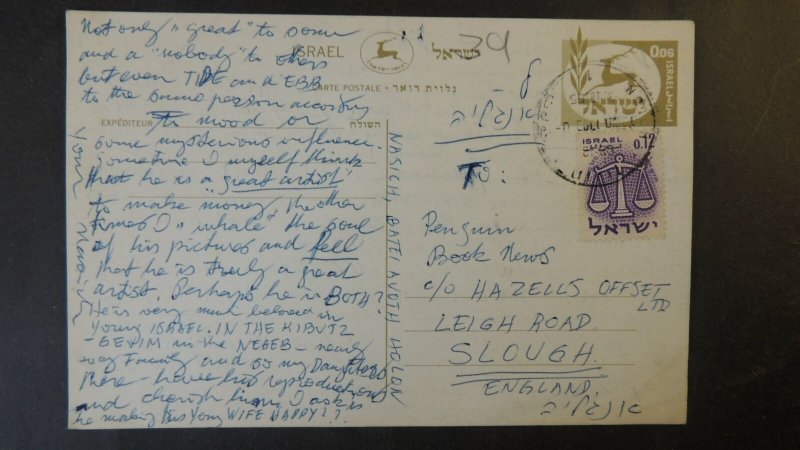 Not only "great" to some
and a "nobody" to others
but even TIDE and EBB
to the same person according
to mood or
some mysterious influence.
Sometime I myself think
that he is a "great artist"
to make money the other
times I "inhale" the soul
of his pictures and feel
that he is truly a great
artist. Perhaps he is BOTH?
He is very much beloved in
Young ISRAEL. IN THE KIBUTZ
- GEVIM in the NEGEB - nearly
every Family and so my Daughters
there - have his reproductions
and cherish him, I ask is
he making this Young WIFE HAPPY!?
Your
NASICH, BATE AVOTH HOLON
ISRAEL
ישראל
39
CARTE POSTALE - גלוית דואר
EXPÉDITEUR
השולח
ל
אנגליה
TO:
Penguin
Book News
c/o HAZELLS OFFSET
LTD
LEIGH ROAD.
SLOUGH.
ENGLAND.
אנגליה
0.06
ISRAEL
ישראל
ISRAEL
0.12
ישראל